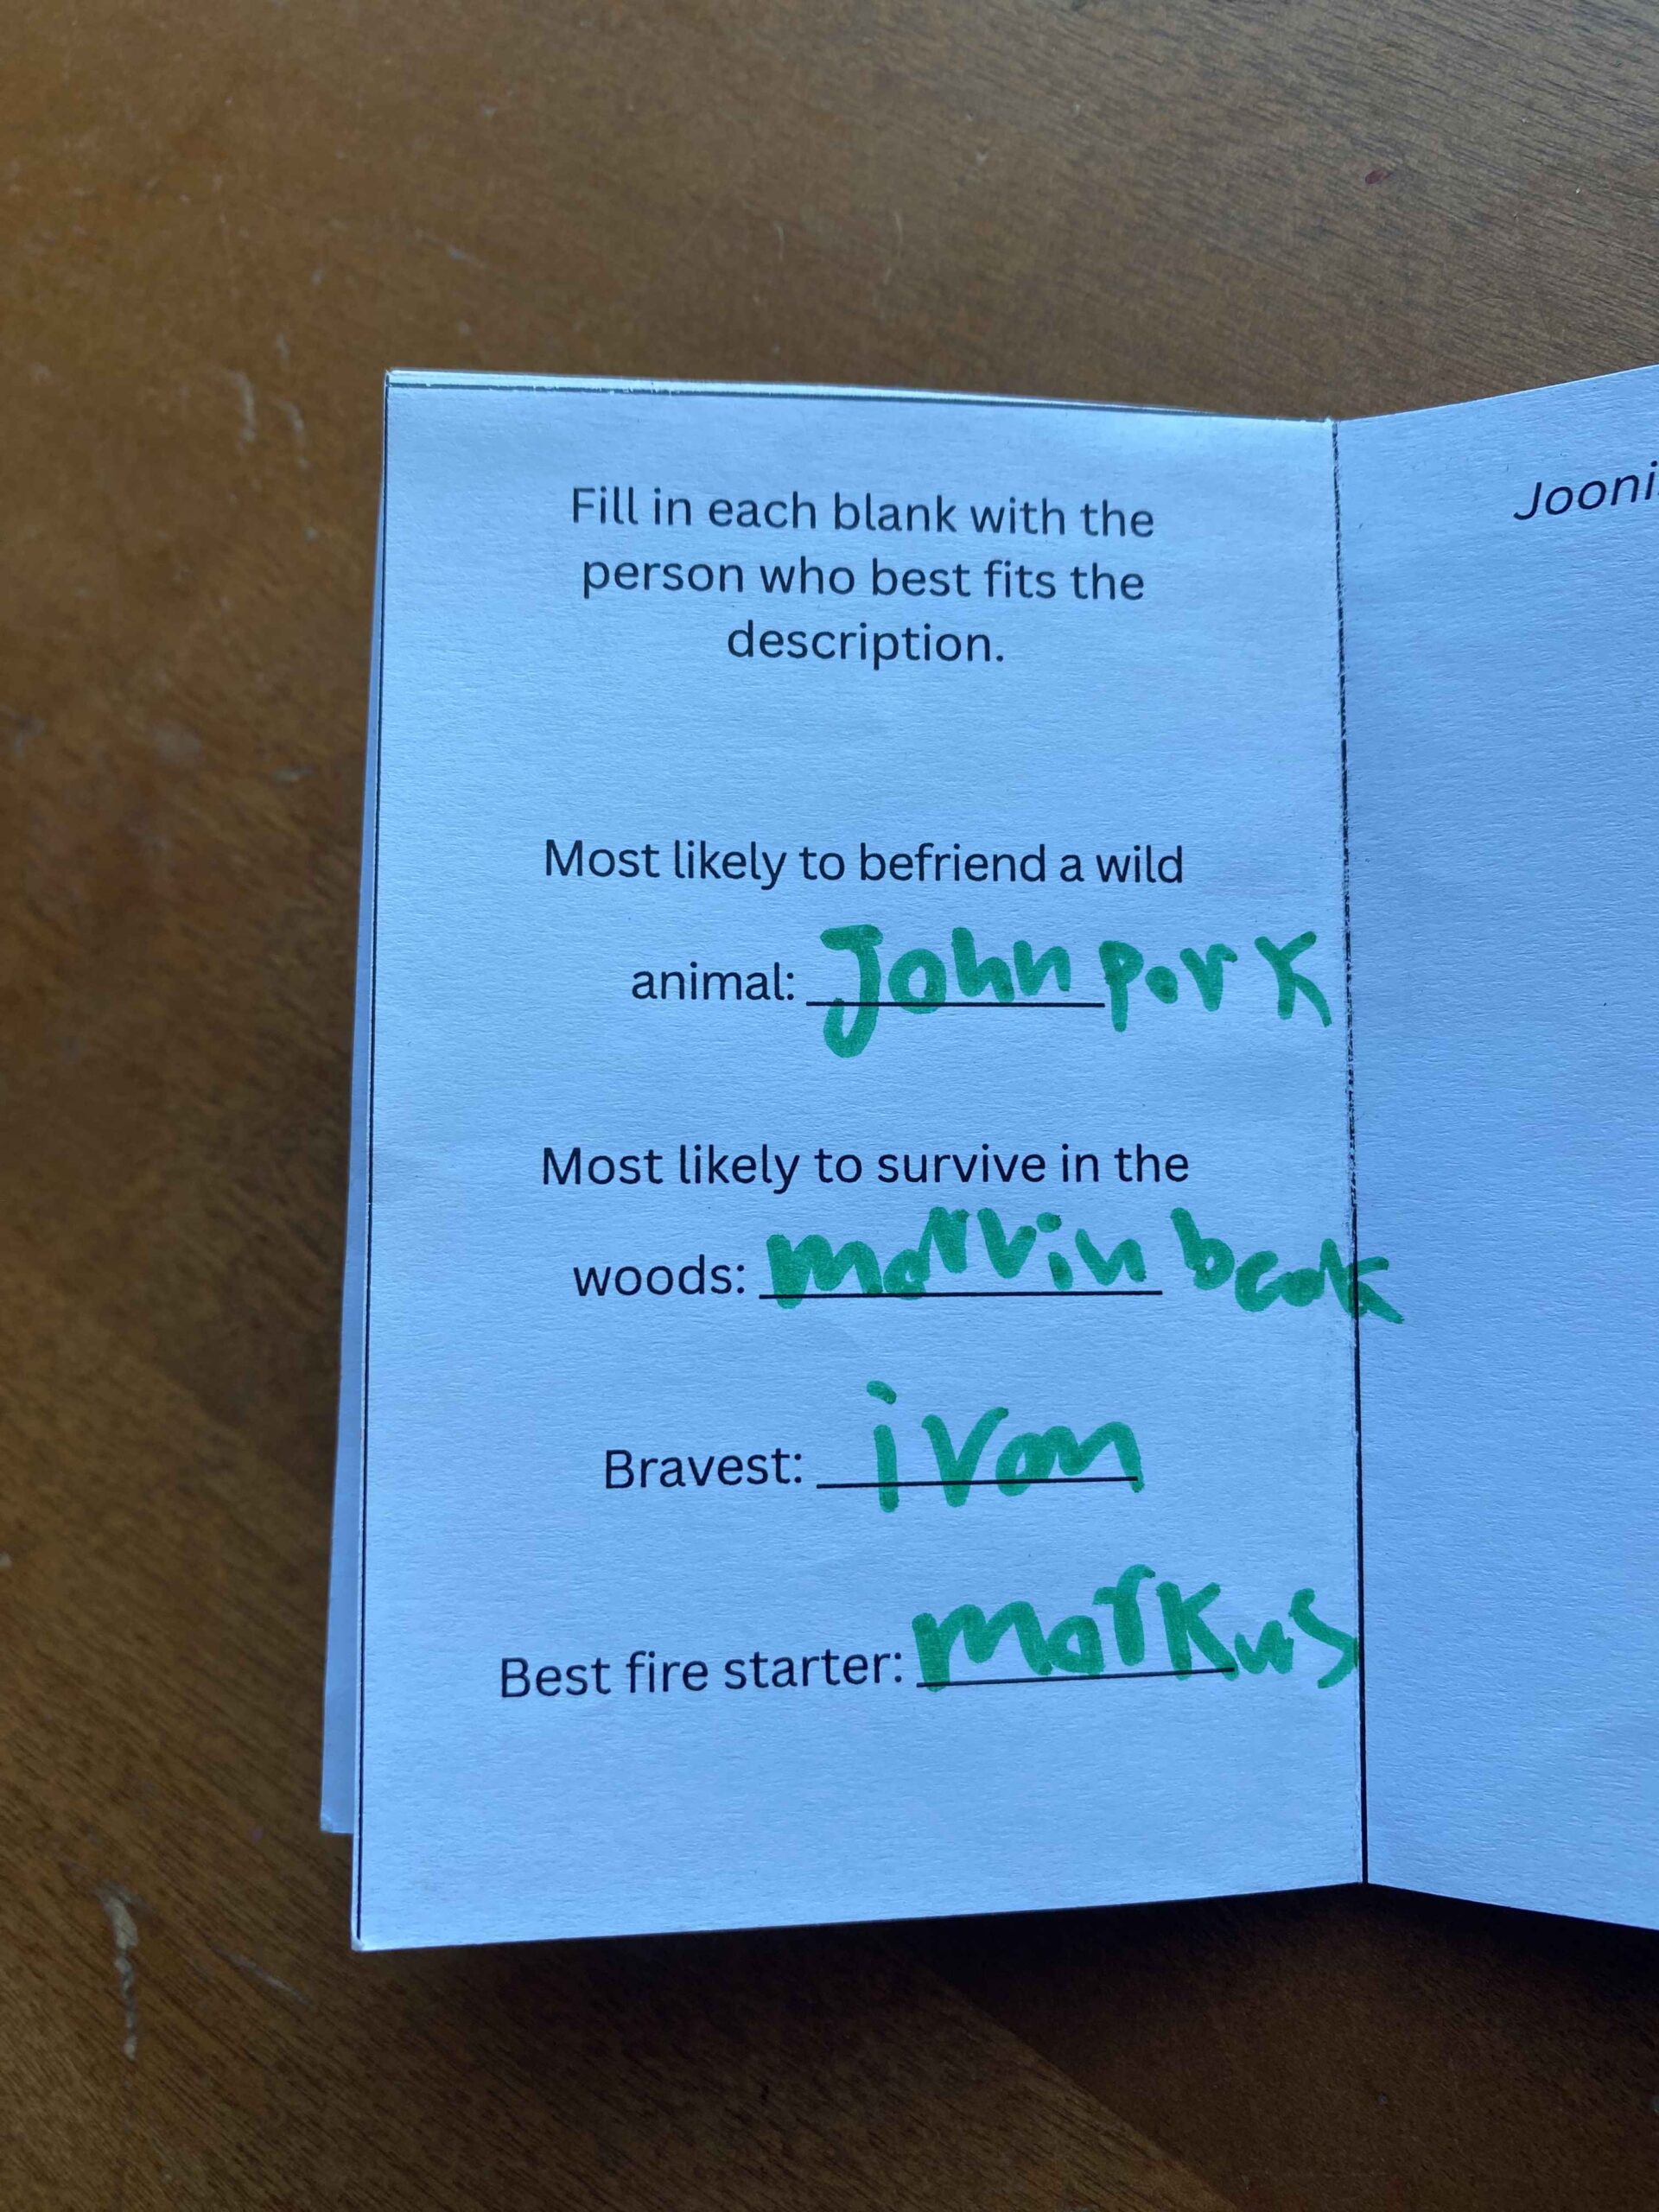 Fill in each blank with the
person who best fits the
description.
Most likely to befriend a wild
animal: John pork
Most likely to survive in the
woods: marvin beak
Bravest: ivan
Best fire starter: markus